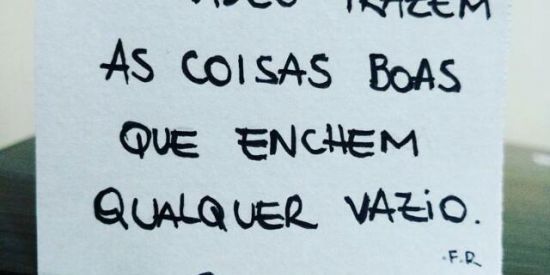 TRAZEM
AS COISAS BOAS
QUE ENCHEM
QUALQUER VAZIO.
.F.R